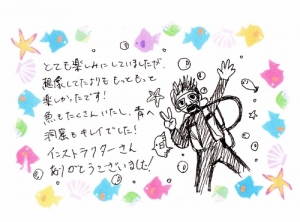 とても楽しみにしていましたが、
想像してたよりももっともっと
楽しかったです!
魚もたくさんいたし、青へ
洞窟もキレイでした!
インストラクターさん
ありがとうございました!